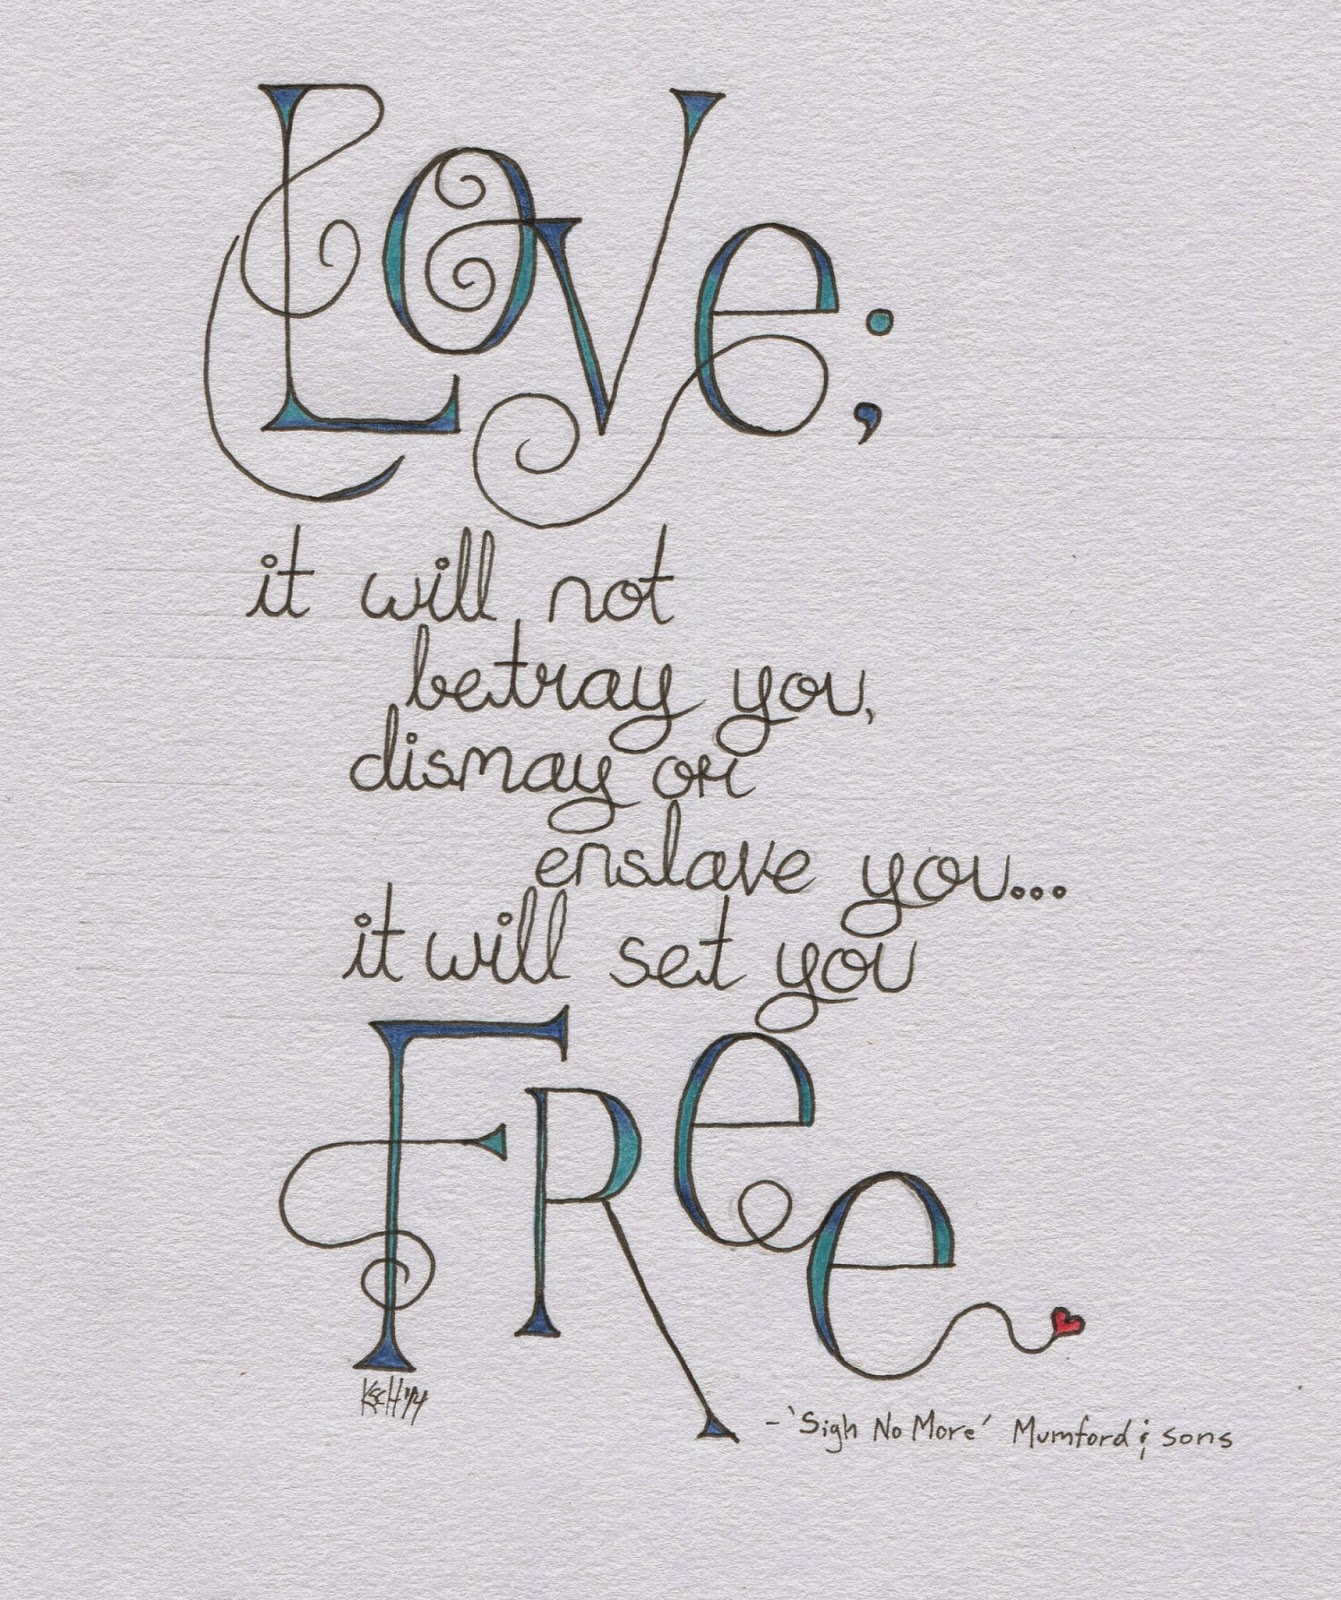 Love;
it will not
betray you,
dismay or
enslave you...
it will set you
FRee
KSCH'14
-'Sigh No More' Mumford & sons